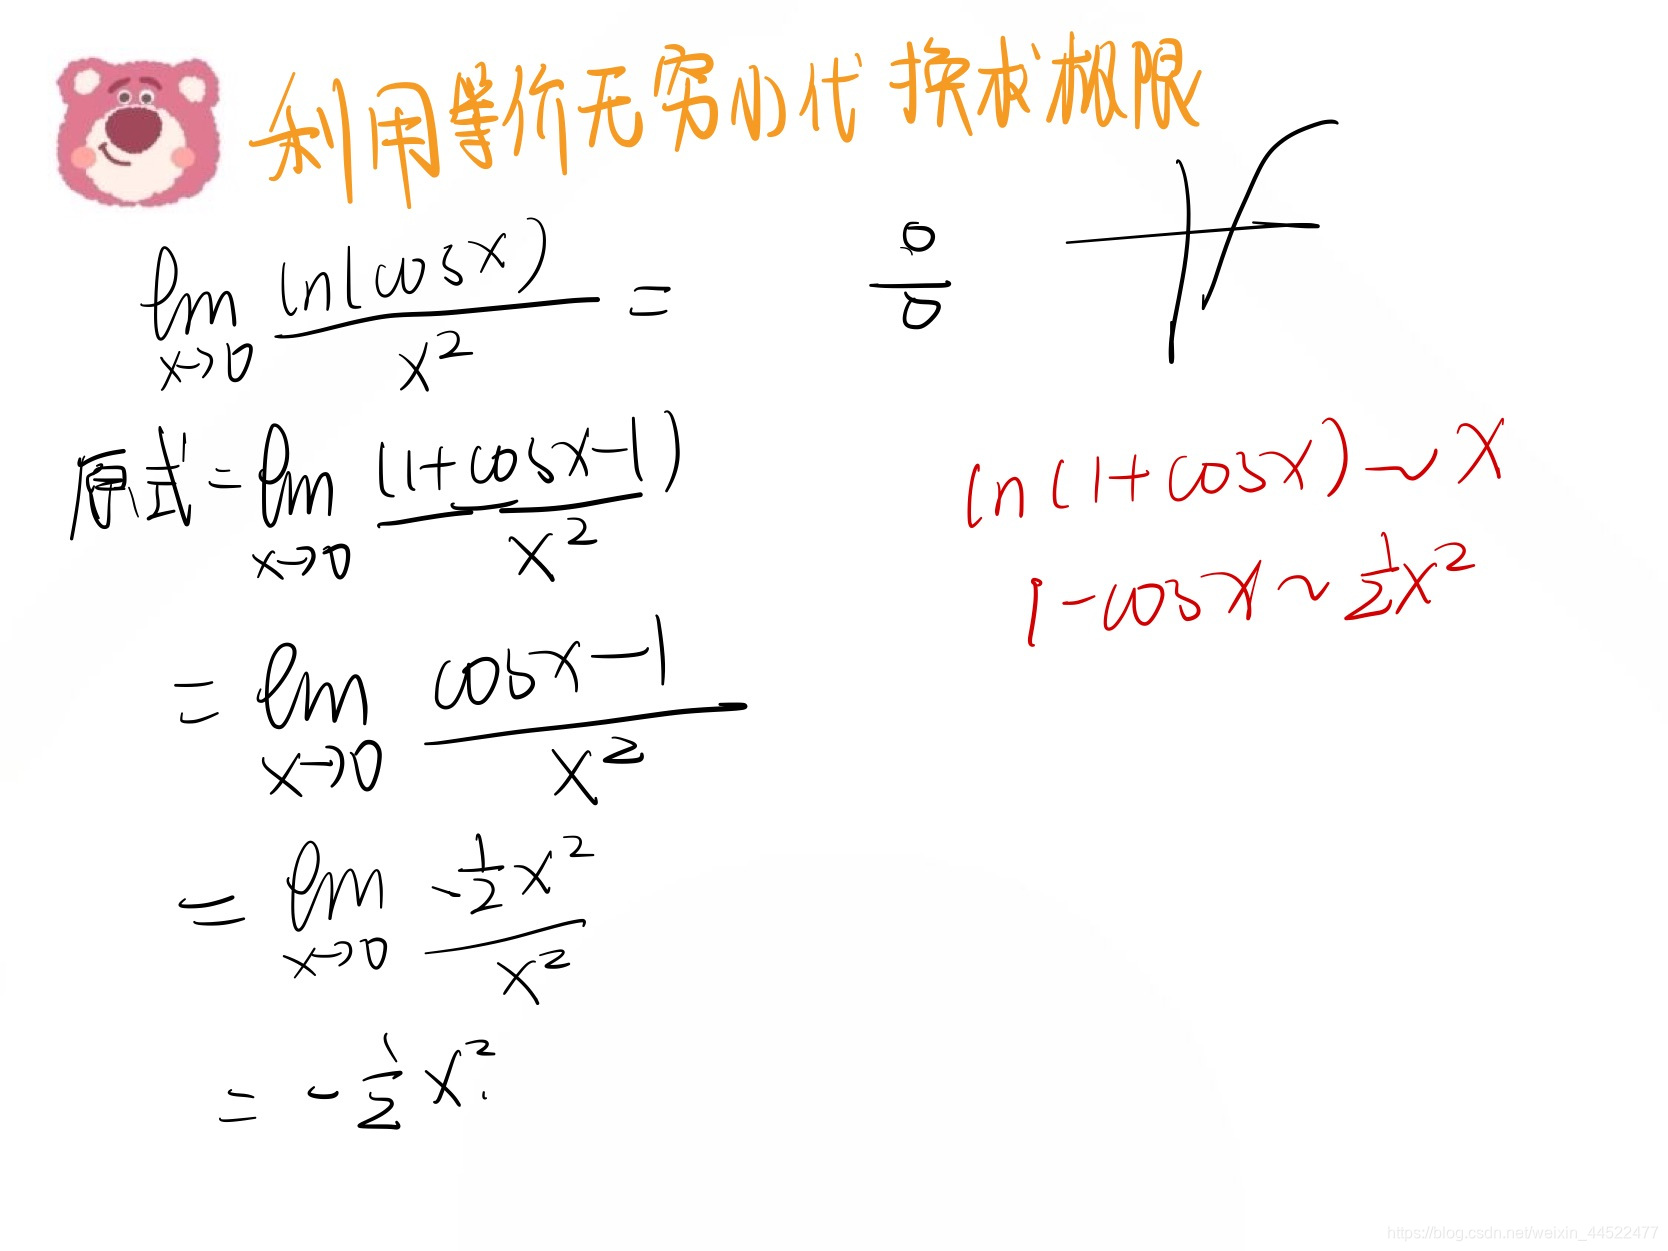 利用等价无穷小代换求极限
lim x→0 ln(cosx) / x² =
0/0
原式 = lim x→0 (1+cosx-1) / x²
ln(1+cosx) ~ x
1-cosx ~ 1/2 x²
= lim x→0 cosx-1 / x²
= lim x→0 -1/2 x² / x²
= -1/2 x².
https://blog.csdn.net/weixin_44522477